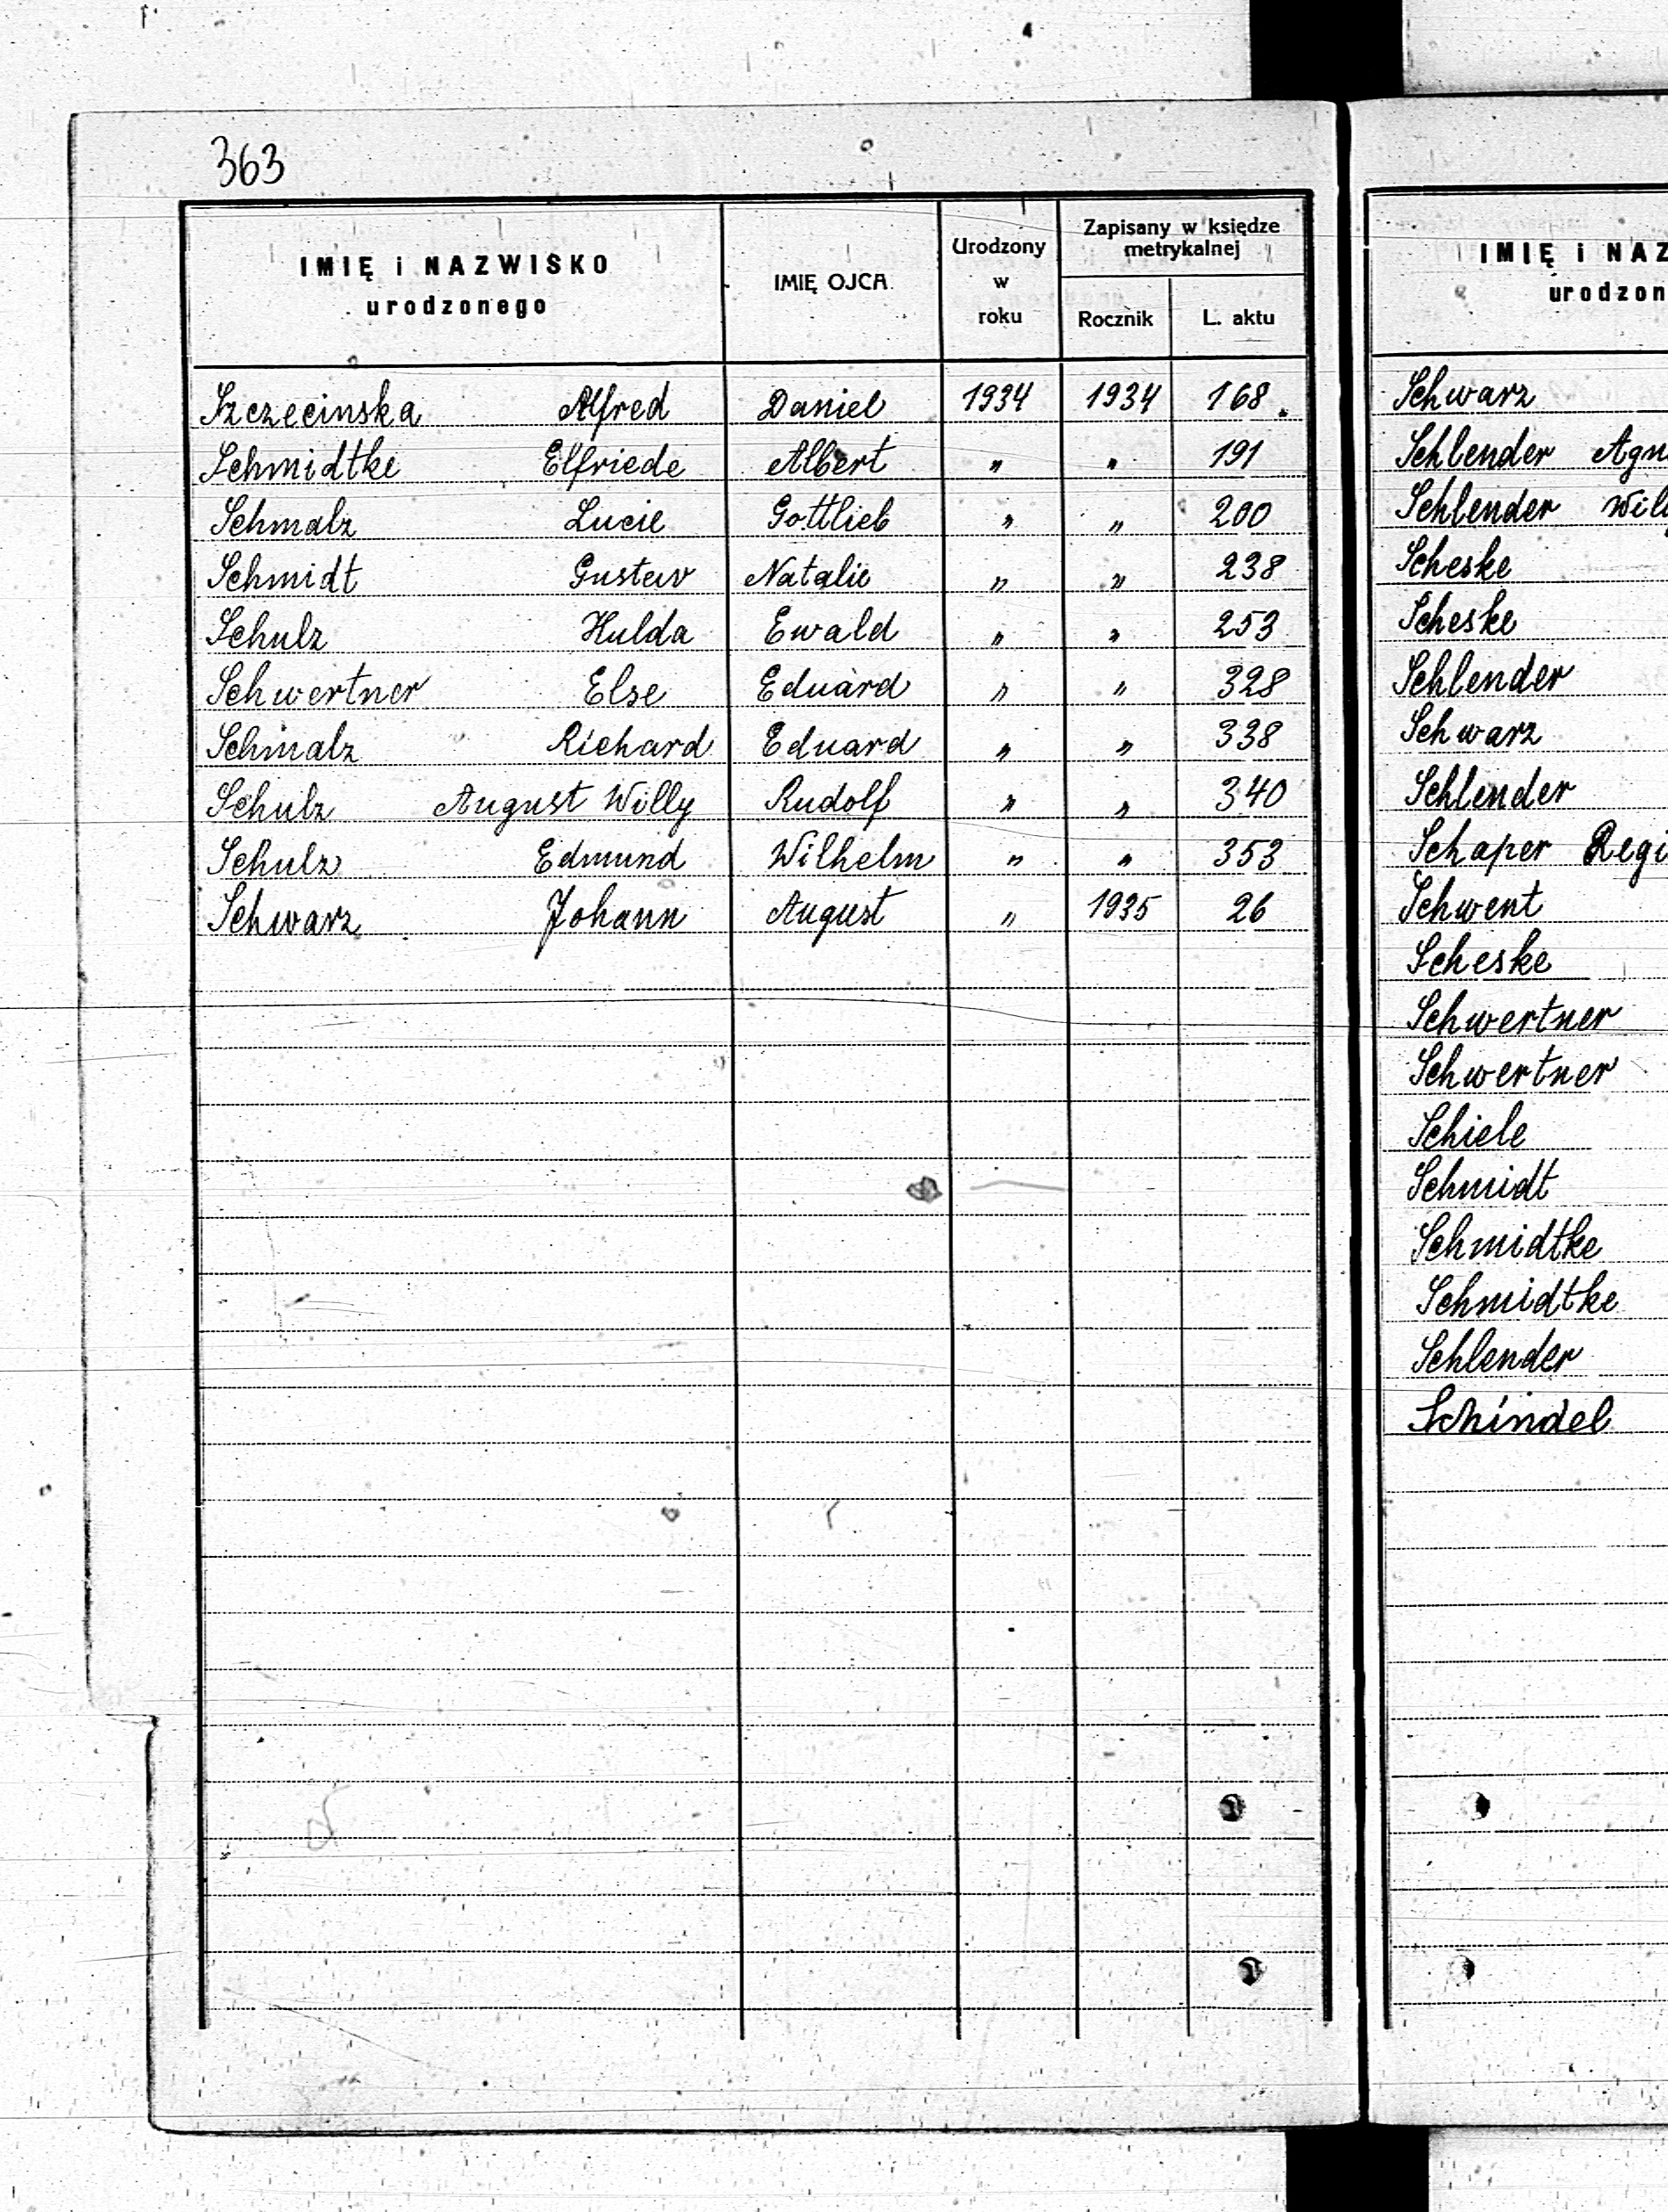 363
IMIĘ i NAZWISKO
urodzonego
IMIĘ OJCA
Urodzony
w
roku
Zapisany w księdze
metrykalnej
Rocznik L. aktu
Szczecinska Alfred Daniel 1934 1934 168.
Schmidtke Elfriede Albert " " 191
Schmalz Lucie Gottlieb " " 200
Schmidt Gustav Natalie " " 238
Schulz Hulda Ewald " " 253
Schwertner Else Eduard " " 328
Schmalz Richard Eduard " " 338
Schulz August Willy Rudolf " " 340
Schulz Edmund Wilhelm " " 353
Schwarz Johann August " 1935 26
IMIĘ i NAZ
urodzon
Schwarz
Schlender Agn
Schlender Wil
Scheske
Scheske
Schlender
Schwarz
Schlender
Schaper Regi
Schwent
Scheske
Schwertner
Schwertner
Schiele
Schmidt
Schmidtke
Schmidtke
Schlender
Schindel